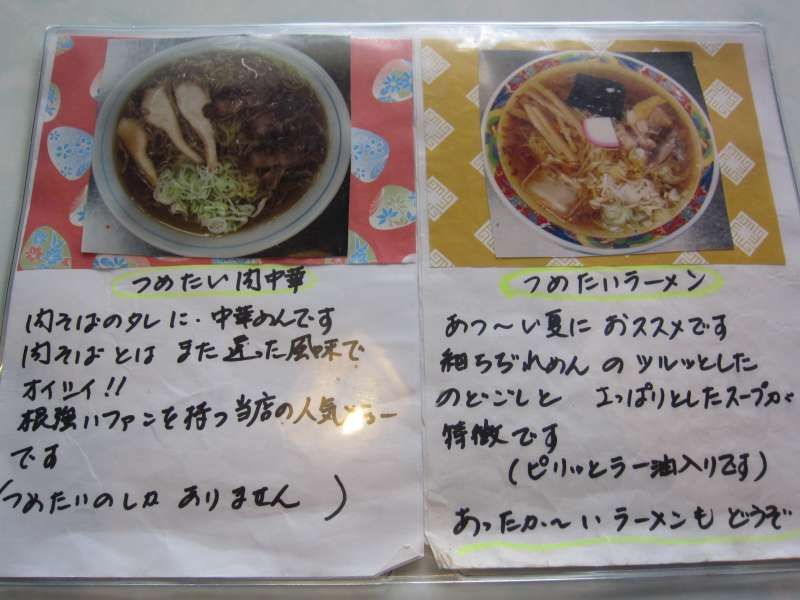 つめたい肉中華
肉そばのタレに、中華めんです
肉そばとは また違った風味で
オイシイ!!
根強いファンを持つ当店の人気メニュー
です
(つめたいのしか ありません )
つめたいラーメン
あつ〜い夏に おススメです
細ちぢれめん の ツルッとした
のどごしと さっぱりとしたスープが
特徴です
(ピリッとラー油入りです)
あったか〜いラーメンも どうぞ